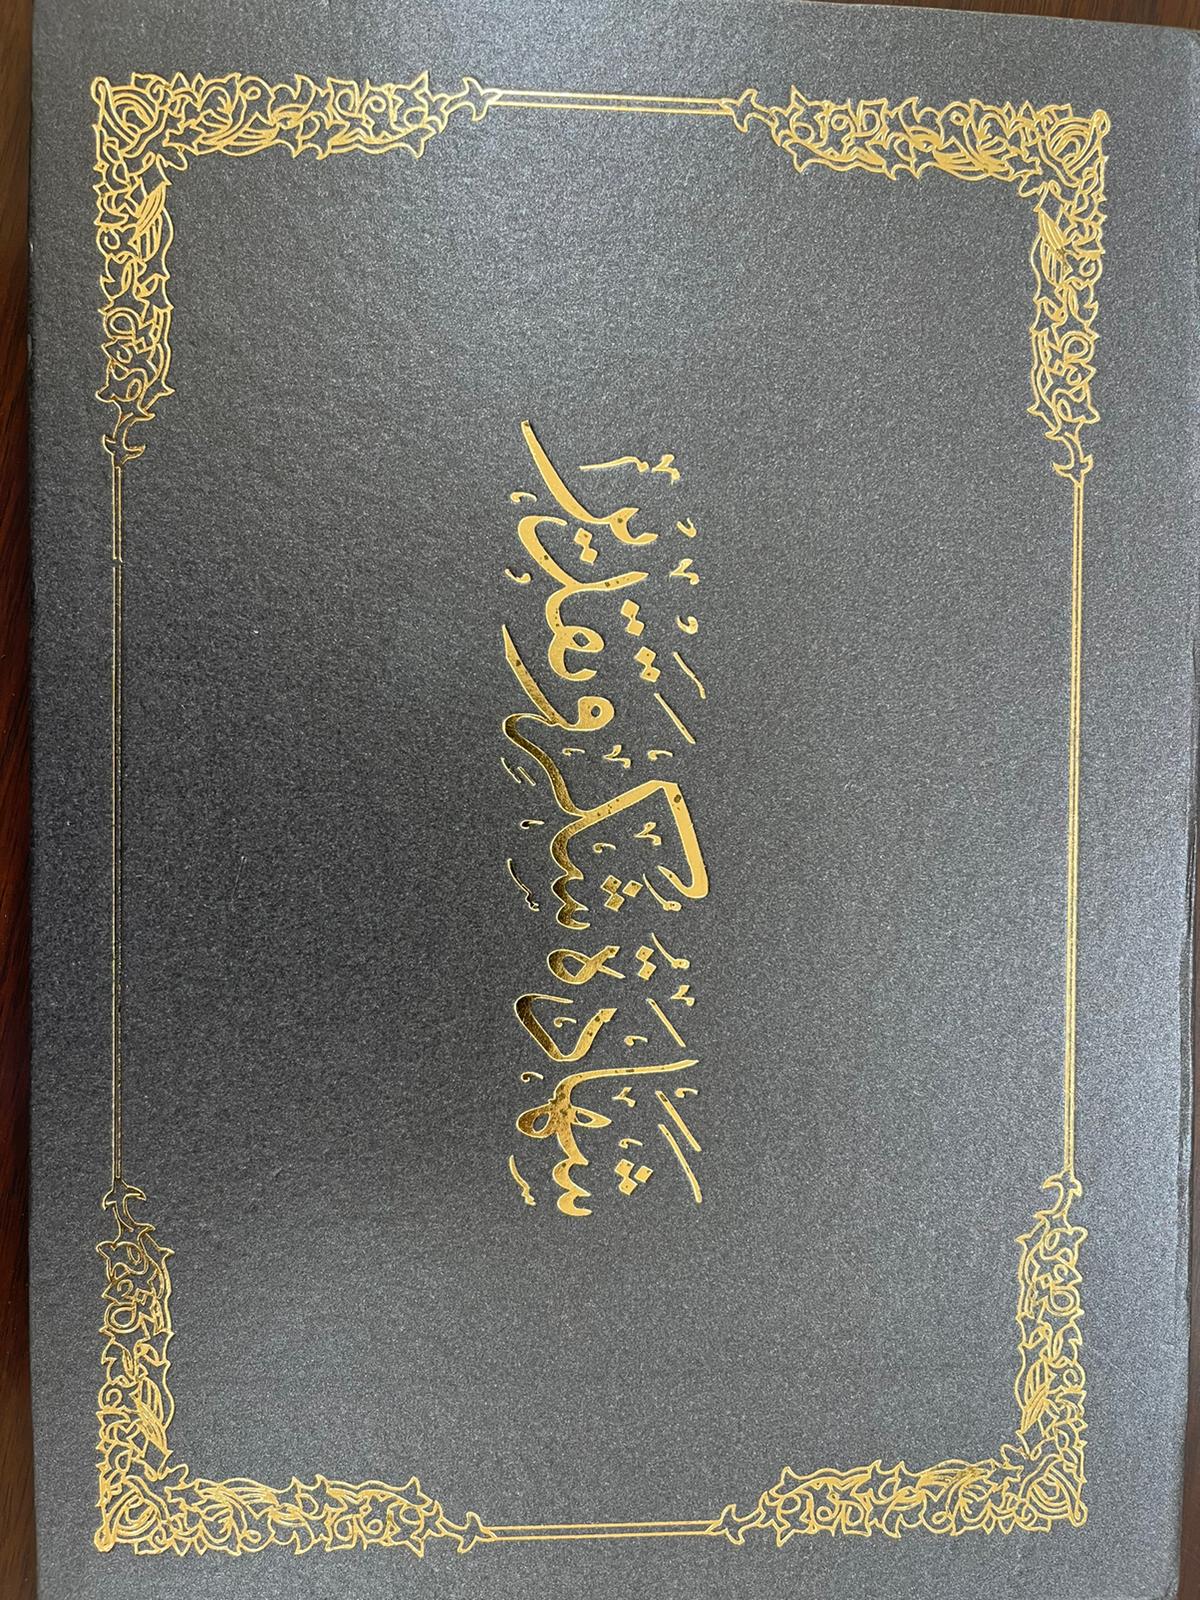 شهادة شكر وتقدير